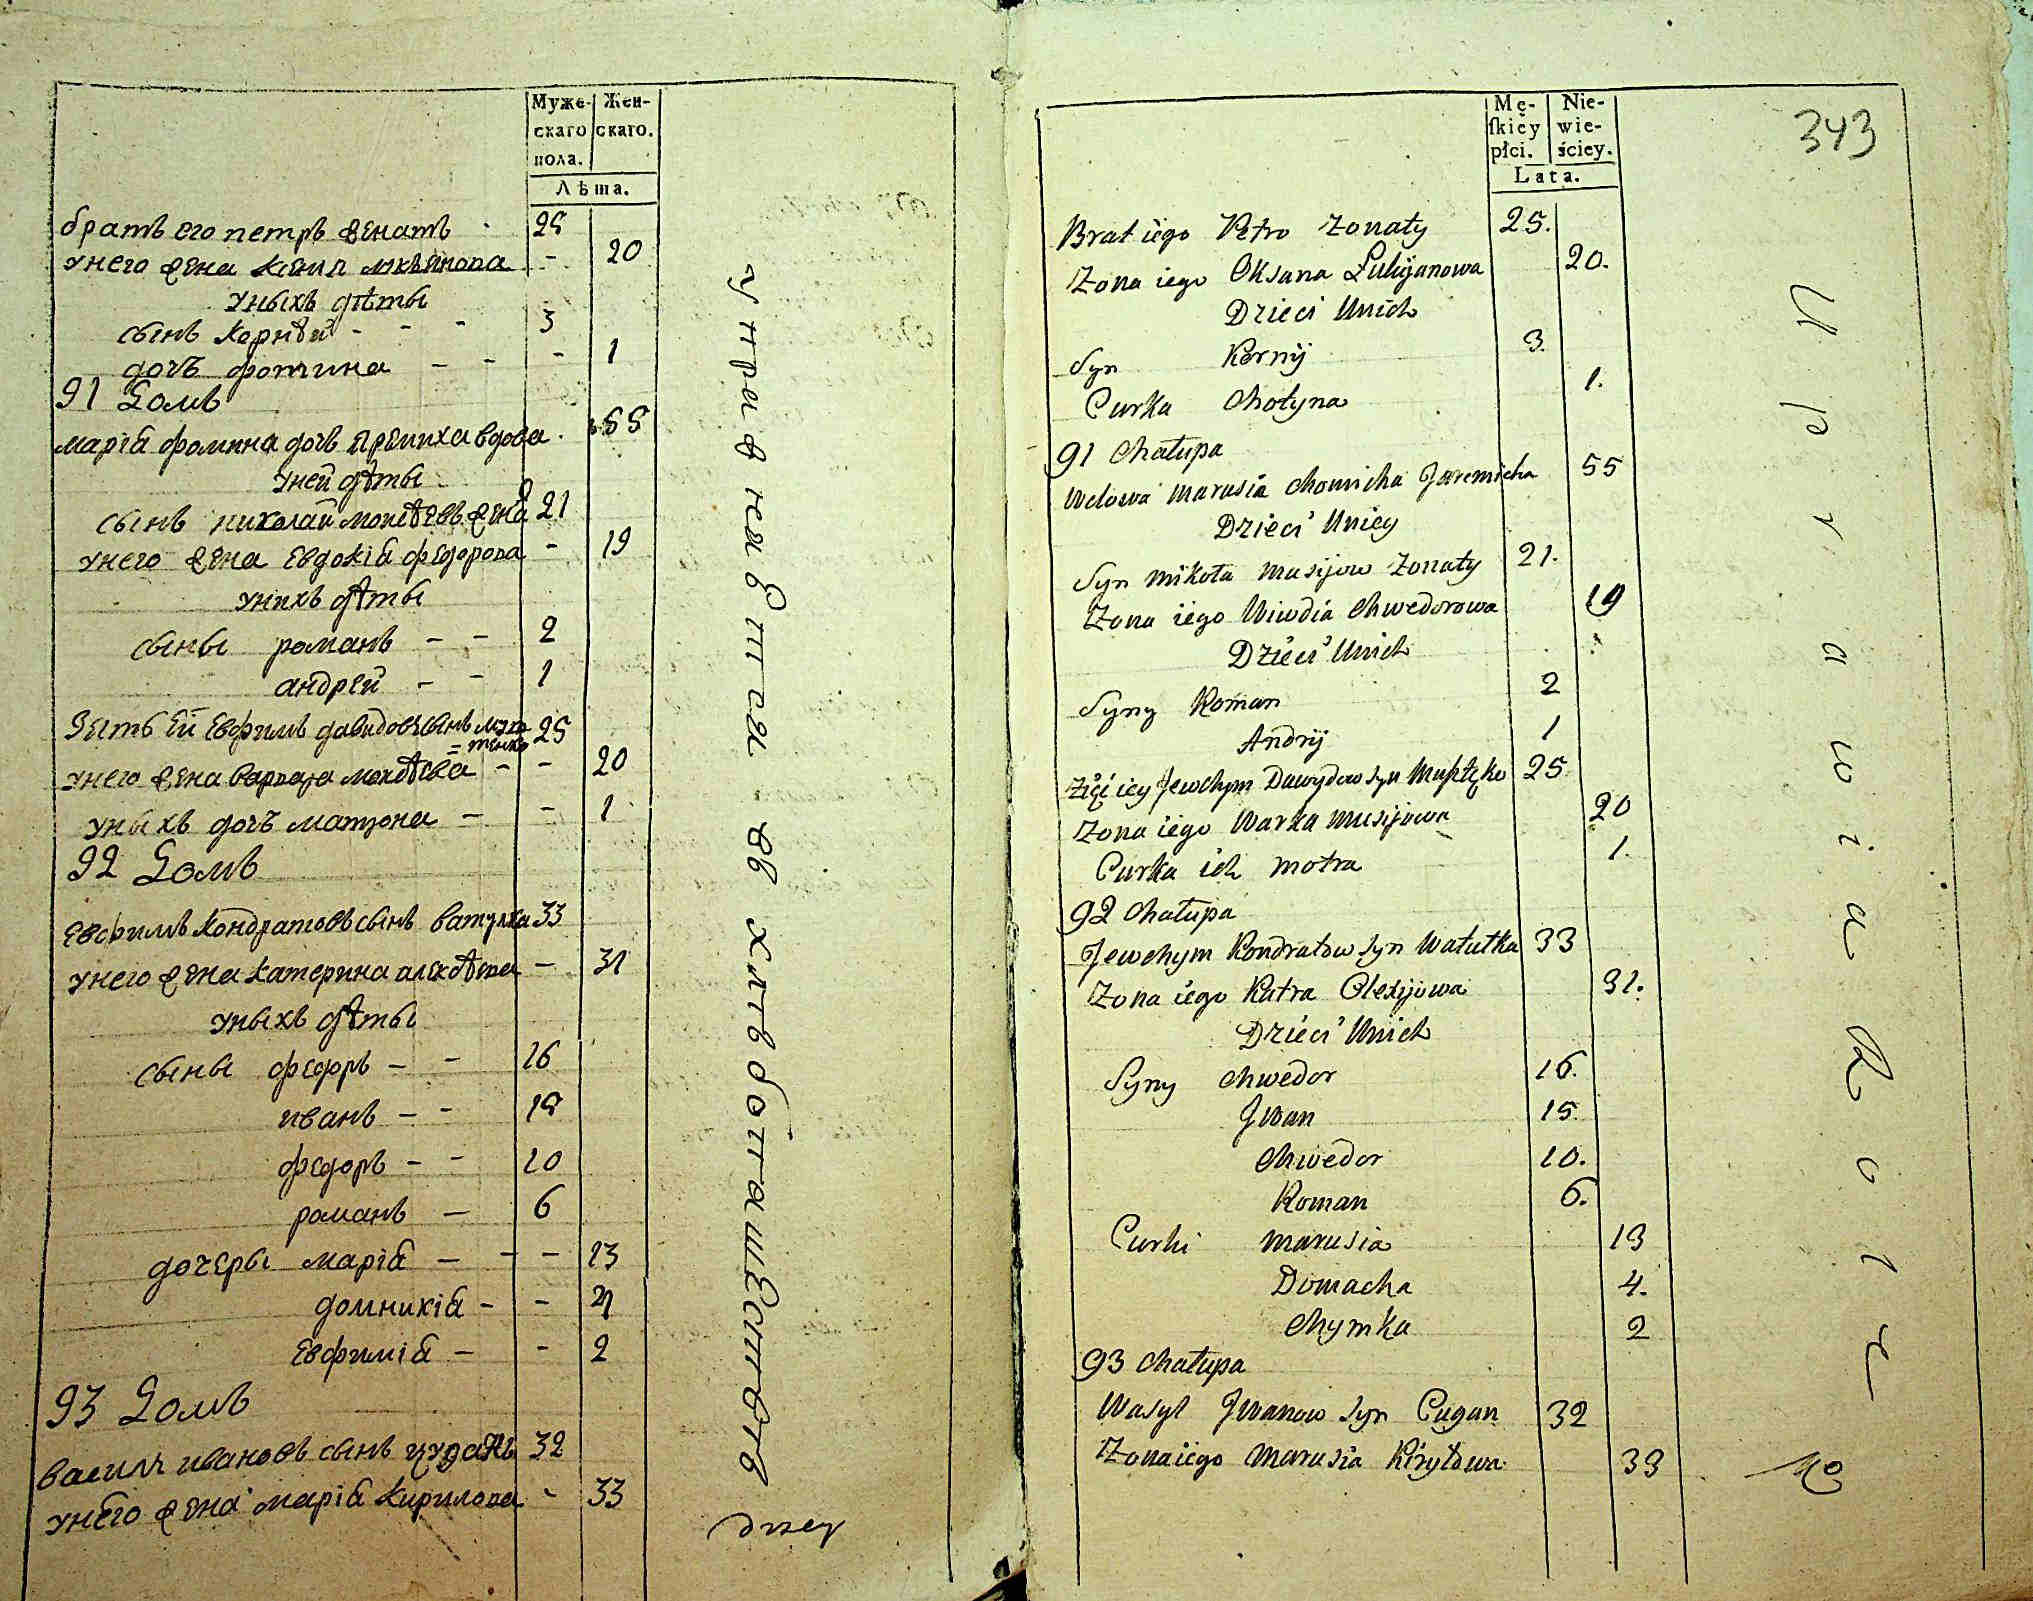 Муже- Жен-
скаго скаго.
пола.
Лѣта.
братъ его петръ женатъ 25
унего жена 20
уныхъ дѣты
сынъ корнѣй - - - 3
дочъ фотина - - - 1
91 Домъ
марія фомина дочъ яремиха вдова 55
уней дѣты
сынъ николай жена 21
унего жена евдокія федорова - 19
унихъ дѣты
сыны романъ - - 2
андрей - - 1
зять ей евфимъ давидовъ сынъ 25
унего жена варвара - - 20
уныхъ дочъ матрона - - 1
92 Домъ
евфимъ кондратовъ сынъ ватулка 33
унего жена катерина алексѣева - 31
уныхъ дѣты
сыны федоръ - - 16
иванъ - - 15
федоръ - - 10
романъ - 6
дочеры марія - - - 13
домникія - - 4
евфимія - - 2
93 Домъ
василь ивановъ сынъ цуганъ 32
унего жена марія кирилова - 33
управляется въ хлѣбопашествѣ
Mę- Nie-
ſkiéy wie-
płci. ściey.
Lata.
343
Brat iego Petro Zonaty 25.
Zona iego Oksana Łukijanowa 20.
Dzieci Unich
Syn Kornij 3.
Curka Chotyna 1.
91 Chałupa
Wdowa Marusia Chomicha Jaremicha 55
Dzieci Uniey
Syn Mikoła Musijow Zonaty 21.
Zona iego Wiwdia Chwedorowa 19
Dzieci Unich
Syny Roman 2
Andrij 1
Zięć iey Jewchym Dawydow Syn 25
Zona iego Warka Musijowa 20
Curka ich Motra 1.
92 Chałupa
Jewchym Kondratow Syn Watułka 33
Zona iego Katra Olexijowa 31.
Dzieci Unich
Syny Chwedor 16.
Jwan 15.
Chwedor 10.
Roman 6.
Curki Marusia 13
Domacha 4.
Chymka 2
93 Chałupa
Wasyl Jwanow Syn Cugan 32
Zona iego Marusia Kiryłowa 33
Uprawia Rolę